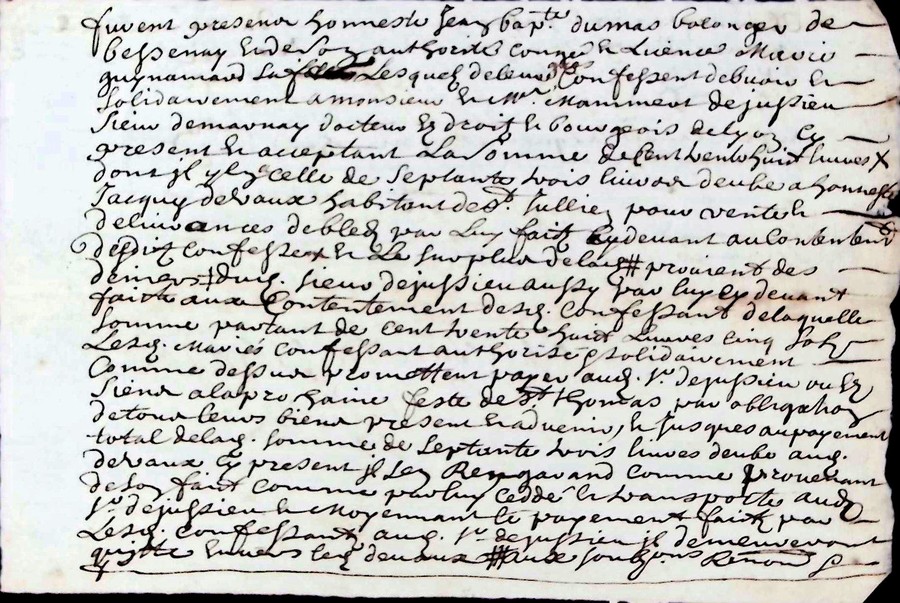 furent presens honneste Jean bap.te dumas bolonger de
bessenay & de son authorité come & licence Marie
guynamand sa lesquels de leurs confessent debvoir &
solidairement a monsieur & M.re Mamment dejussieu
sieur demarnay docteur en droit & bourgeois de lyon cy
present & acceptant La somme de Cent trente huict livres
dont il y en celle de septante trois livres deube a honneste
Jacques devaux habitant de S.t Jullien pour vente &
delivrances de bled par luy fait cy devant au Contentem
desdits Confesse & Le surplus de lad # provient des
deniers dud. sieur dejussieu aussy par luy cy devant
faite aux Contentement desd. Confessant de laquelle
somme partant de cent trente huict Livres cinq solz
Lesd. Mariés Confessant authorisé & solidairement
Comme dessus promettent payer aud. S.r dejussieu ou es
siens a la prochaine feste de S.t thomas par obligation
de tous leurs biens present & advenir, & jusques au payement
total de lad. somme de septante trois livres deube aud.
devaux cy present il les comme provenant
de son fait comme par luy ceddé & transporté aud
S.r dejussieu & Moyennant le payement fait par
Lesd. Confessant aud. S.r dejussieu il demeureront
quitte envers led. devaux # aux soubz.ons Renon